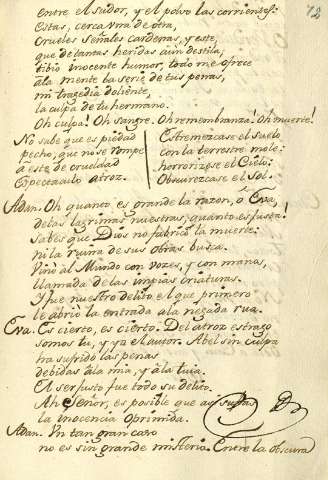 72
entre el sudor, y el polvo las corrientes:
Estas, cerca una de otra,
Crueles señales cardenas, y este,
que de tantas heridas aun destila;
tibio inocente humor, todo me ofrece
âla mente la serie de tus penas,
mi tragedia doliente,
la culpa de tu hermano.
Oh culpa! Oh sangre. Oh remembranza! Oh muerte!
No sabe que es piedad
pecho, que no se rompe
a este de crueldad
Espectaculo atroz.
Estremezcase el suelo
con la terrestre mole:
horrorizese el Cielo:
Obscurezcase el Sol.
Adan. Oh quanto es grande la razon, ô Eva,
delas lagrimas nuestras, quanto es justa!
Sabes que Dios no fabricò la muerte:
ni la ruina de sus obras busca.
Vino àl Mundo con vozes, y con manos,
llamada de las impias criaturas.
Y fue nuestro delito el que primero
le abriò la entrada a la negada rua.
Eva. Es cierto, es cierto. Del atroz estrago
somos tu, y yo el autor. Abel sin culpa
ha sufrido las penas
debidas âla mia, y âla tuia.
El ser justo fue todo su delito.
Ah Señor, es posible que asi sufras
la inocencia oprimida.
Adan. En tan gran caso
no es sin grande misterio. Entre la obscura